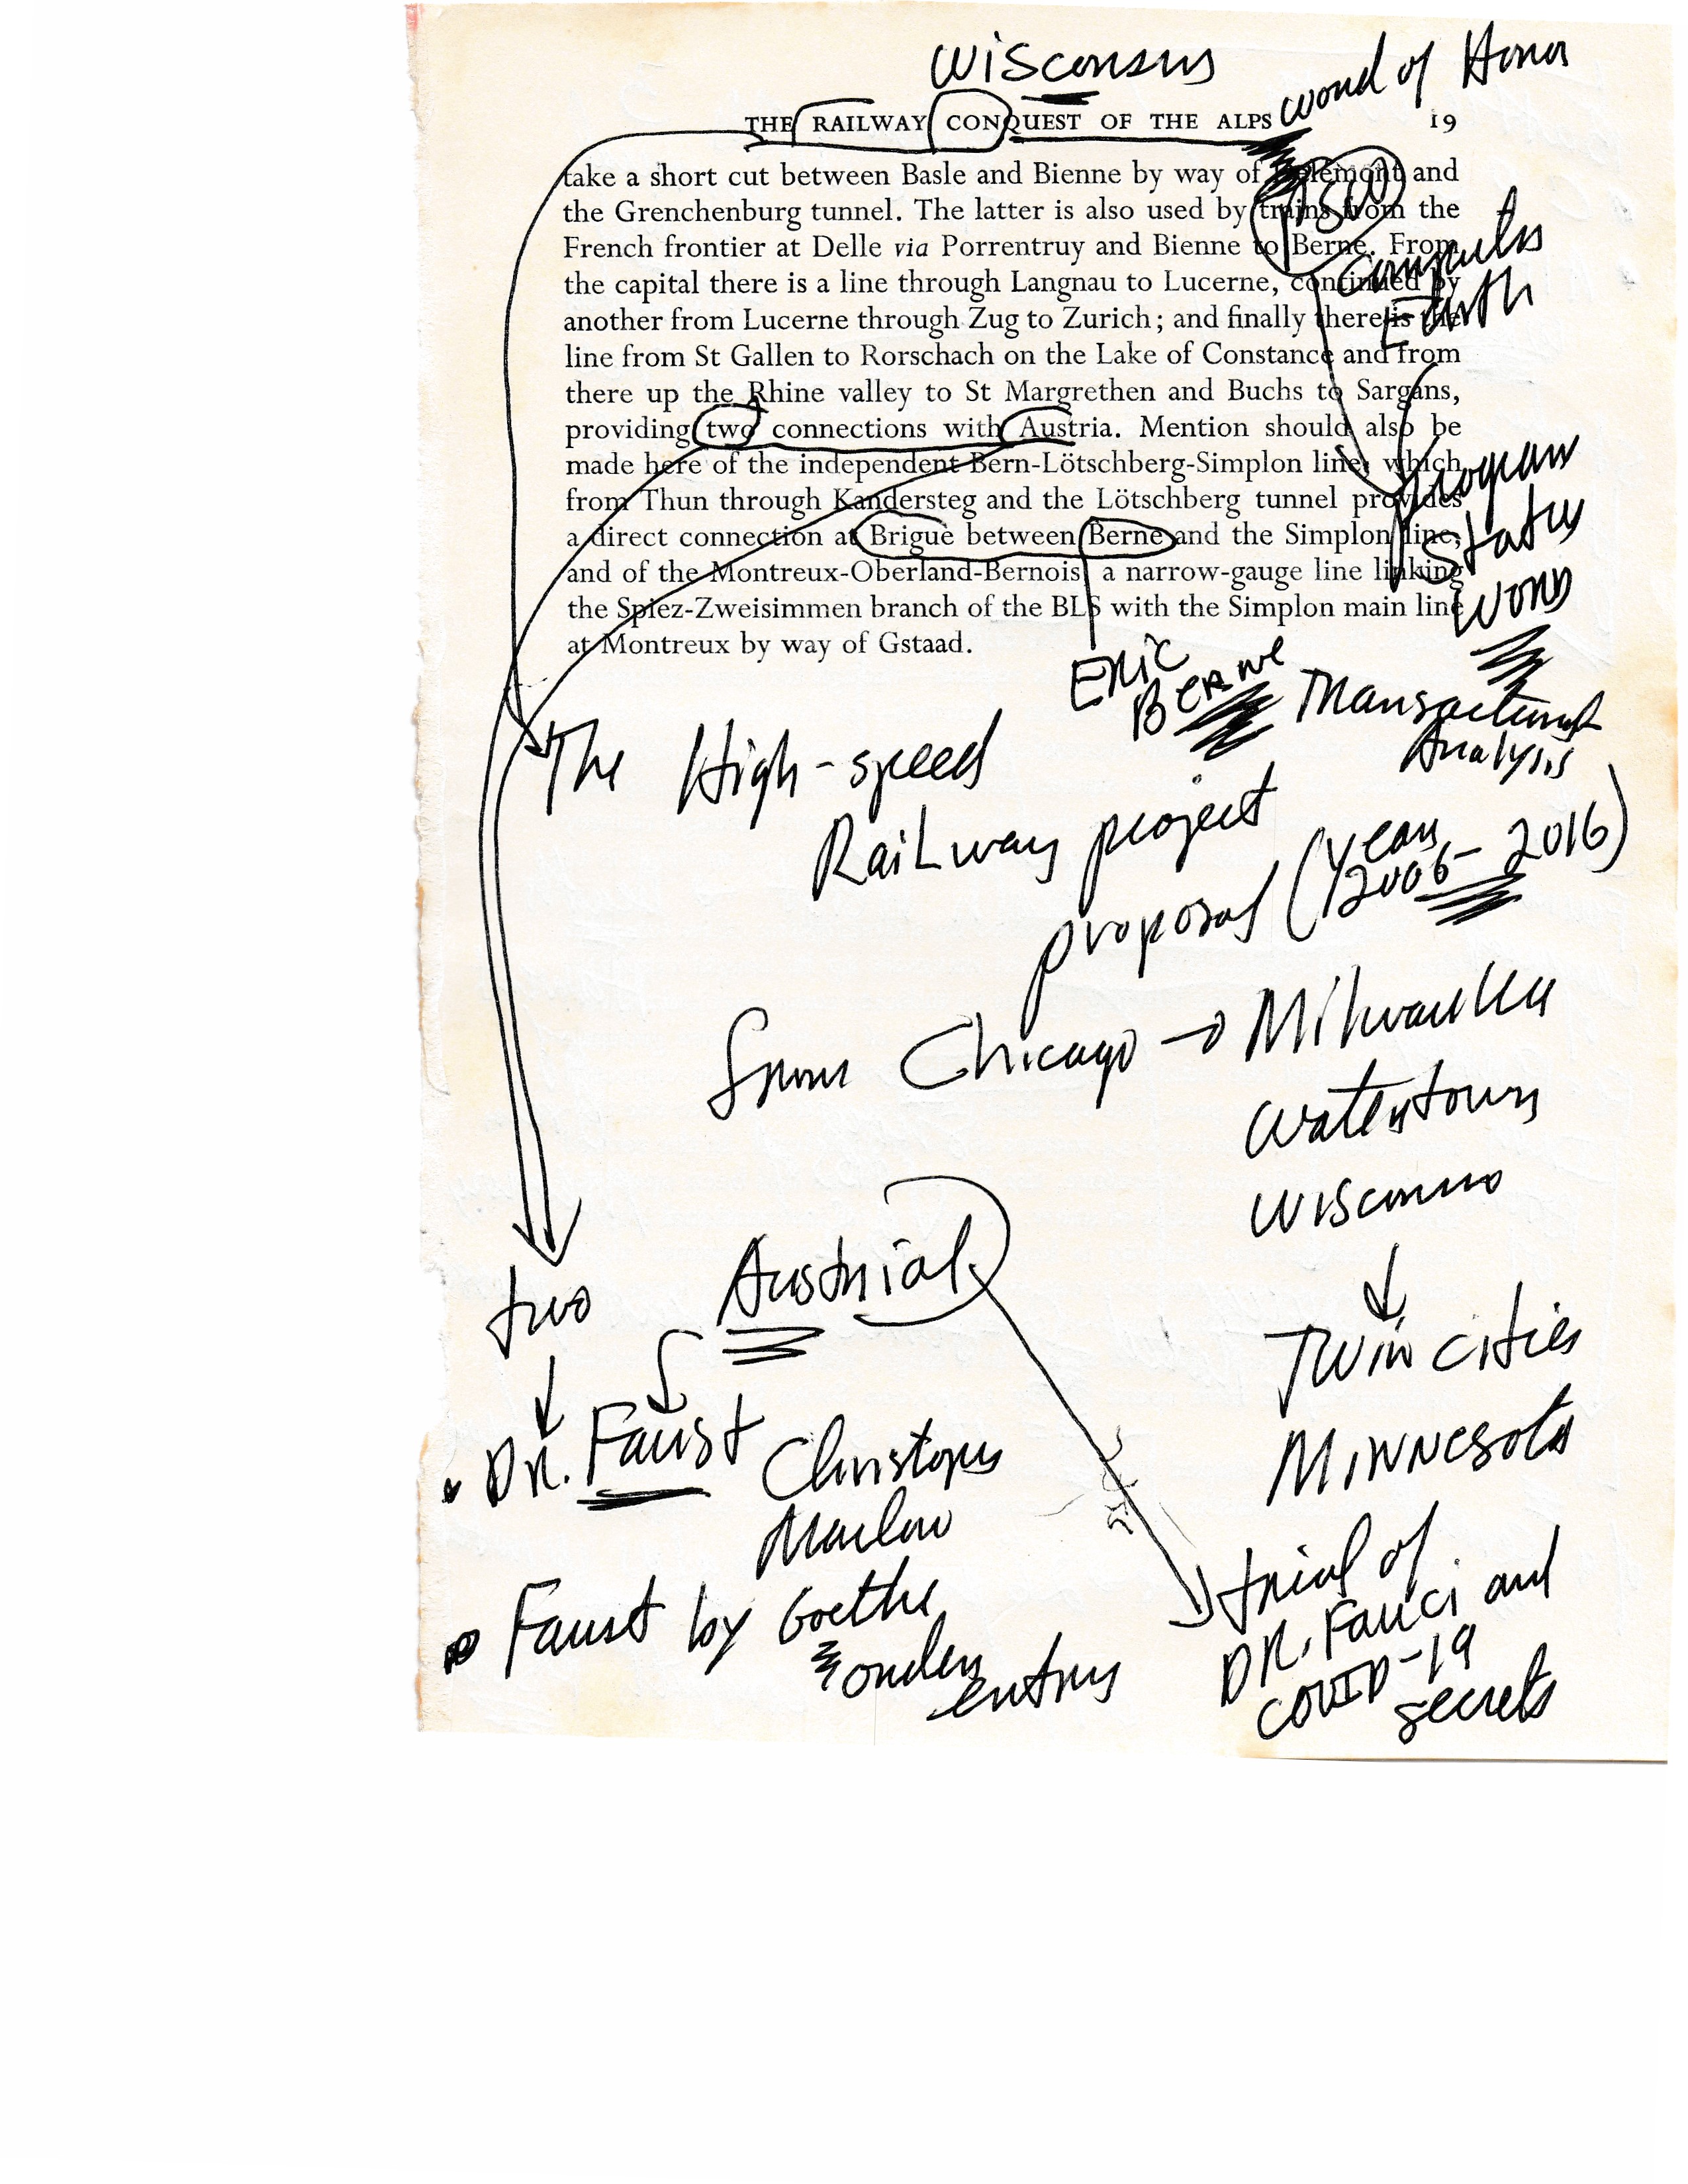 Wisconsin
Word of Honor
THE RAILWAY CONQUEST OF THE ALPS 19
take a short cut between Basle and Bienne by way of Delémont and
the Grenchenburg tunnel. The latter is also used by trains from the
French frontier at Delle via Porrentruy and Bienne to Berne. From
the capital there is a line through Langnau to Lucerne, continued by
another from Lucerne through Zug to Zurich; and finally there is the
line from St Gallen to Rorschach on the Lake of Constance and from
there up the Rhine valley to St Margrethen and Buchs to Sargans,
providing two connections with Austria. Mention should also be
made here of the independent Bern-Lötschberg-Simplon line, which
from Thun through Kandersteg and the Lötschberg tunnel provides
a direct connection at Brigue between Berne and the Simplon line,
and of the Montreux-Oberland-Bernois, a narrow-gauge line linking
the Spiez-Zweisimmen branch of the BLS with the Simplon main line
at Montreux by way of Gstaad.
PSW
Computer
Earth
Program
Status
Word
Eric
Berne
Transactional
Analysis
The High-speed
Railway project
proposal (years
2006-2016)
from Chicago → Milwaukee
Watertown
Wisconsin
Twin cities
Minnesota
two Austrial
Dr. Faust Christoper
Marlow
Faust by Goethe
order
entry
trial of
DR. Fauci and
COVID-19
secrets